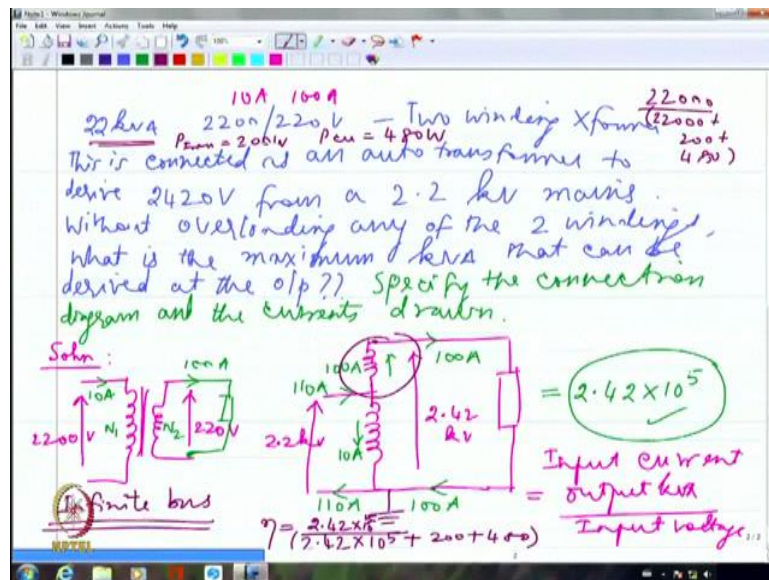 Note1 - Windows Journal
File Edit View Insert Actions Tools Help
100%
10A 100A
22kVA 2200/220V - Two winding Xformer
P_Iron = 200W P_cu = 480W
22000
(22000 +
200 +
480)
This is connected as an auto transformer to
derive 2420V from a 2.2 kV mains.
Without overloading any of the 2 windings,
what is the maximum kVA that can be
derived at the o/p ?? Specify the connection
diagram and the currents drawn.
Soln :
10A 100A
2200V N1 N2 220V
100A 100A
110A
2.2kV 10A 2.42 kV
110A 100A
= 2.42 × 10^5
Input current
= output kVA
Input voltage
Infinite bus
η = 2.42 × 10^5
(2.42 × 10^5 + 200 + 480)
NPTEL